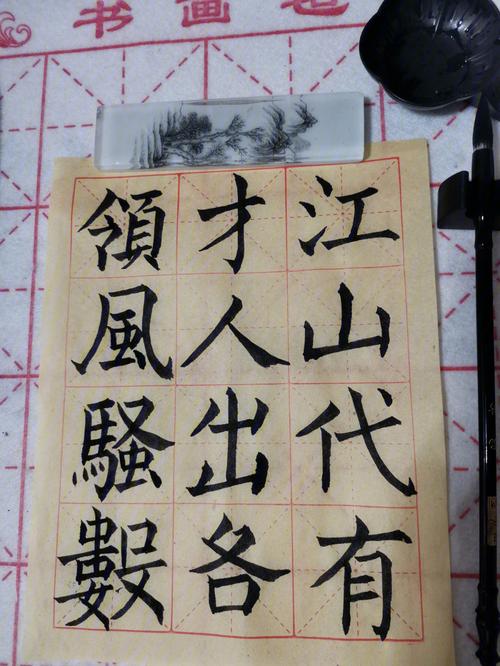 书画毡
江山代有
才人出各
領風騷數